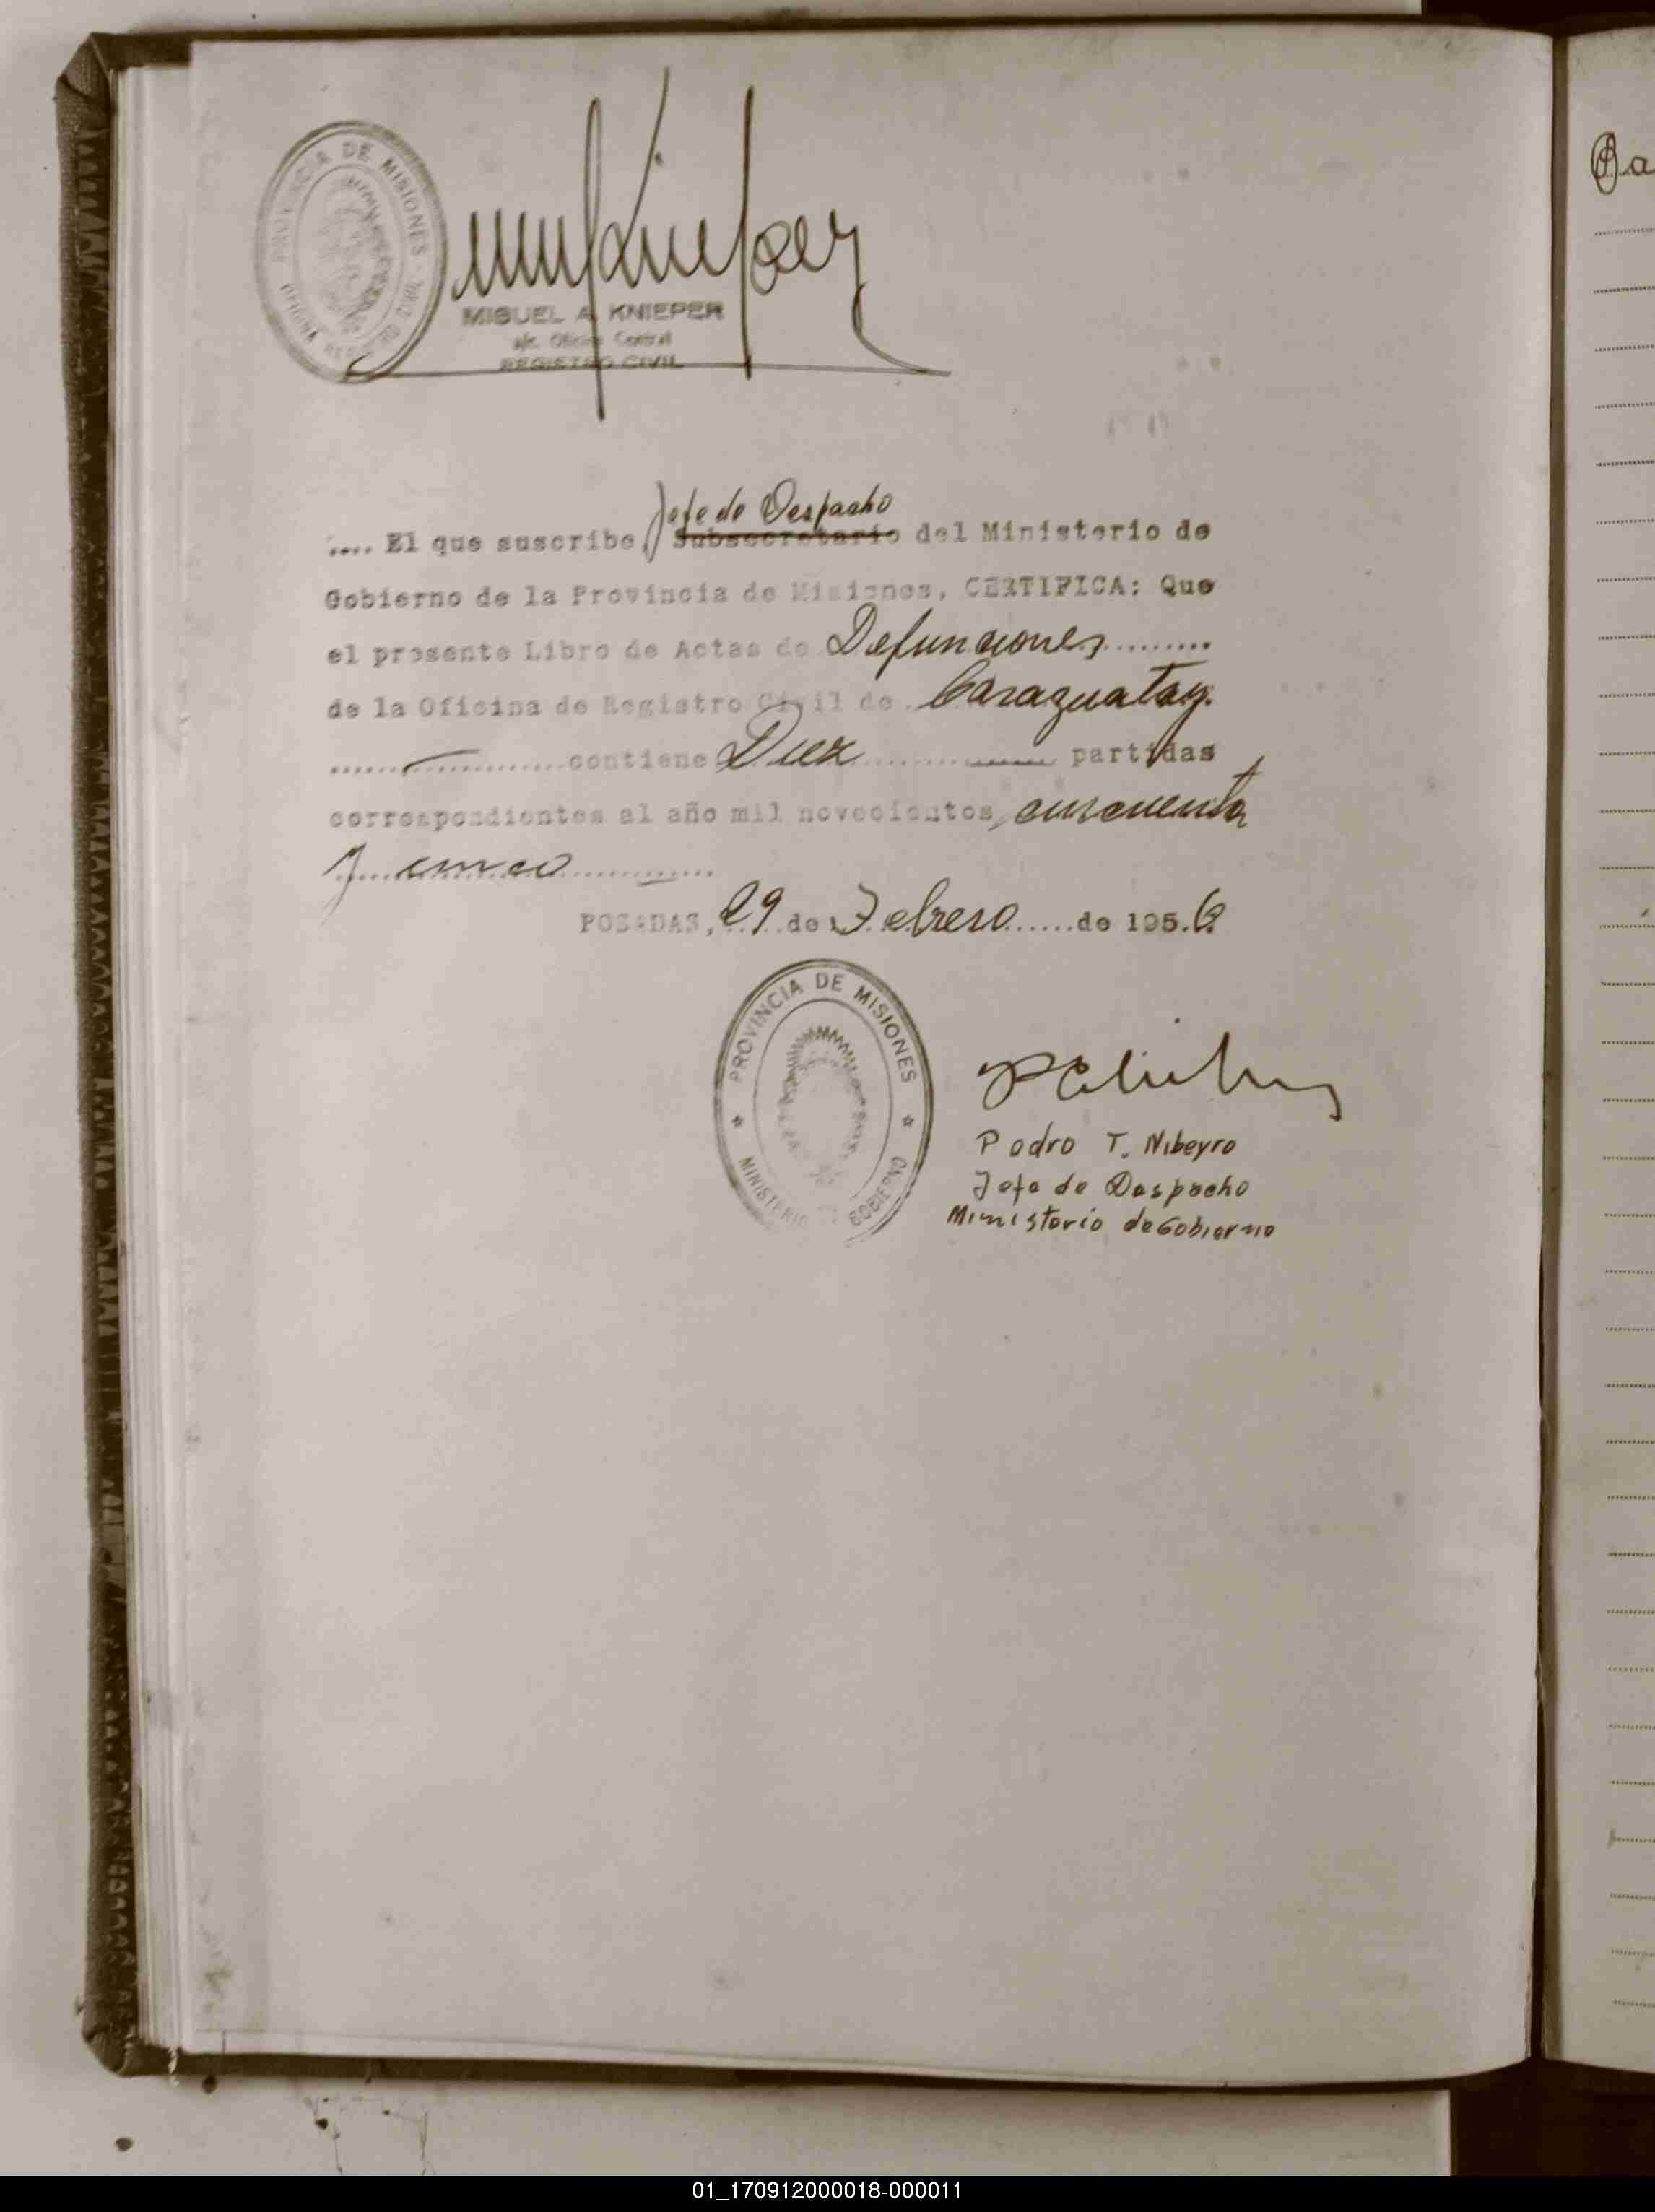 PROVINCIA DE MISIONES
MIGUEL A. KNIEPER
a/c. Oficina Central
REGISTRO CIVIL
Jefe de Despacho
.... El que suscribe, Subsecretario del Ministerio de
Gobierno de la Provincia de Misiones, CERTIFICA: Que
el presente Libro de Actas de Defunciones.........
de la Oficina de Registro Civil de Caraguatay.
contiene Diez partidas
correspondientes al año mil novecientos, cincuenta
y cinco
POSADAS, 29 de Febrero de 195.6.
PROVINCIA DE MISIONES
MINISTERIO DE GOBIERNO
Pedro T. Nibeyro
Jefe de Despacho
Ministerio de Gobierno
01_170912000018-000011